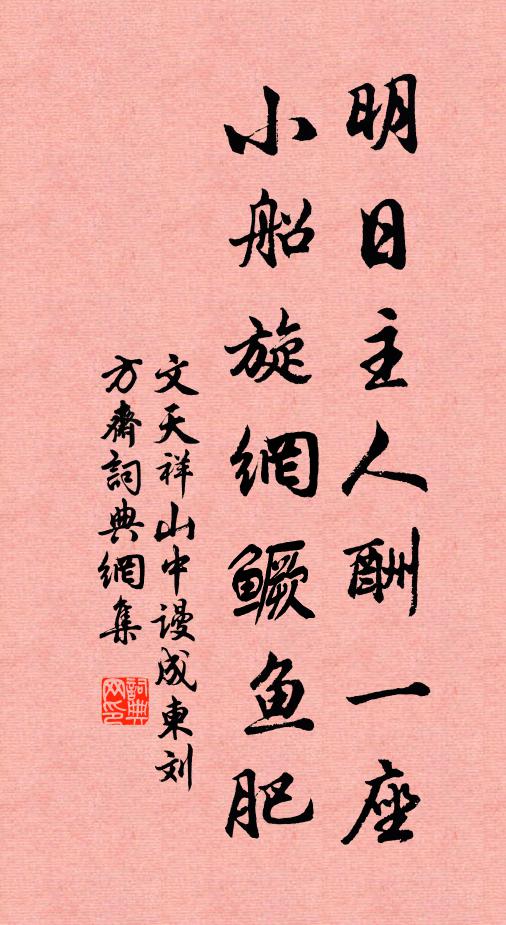 明日主人酬一座
小船旋網鳜鱼肥
文天祥山中谩成東刘
方齋詞典網集
詞典网印